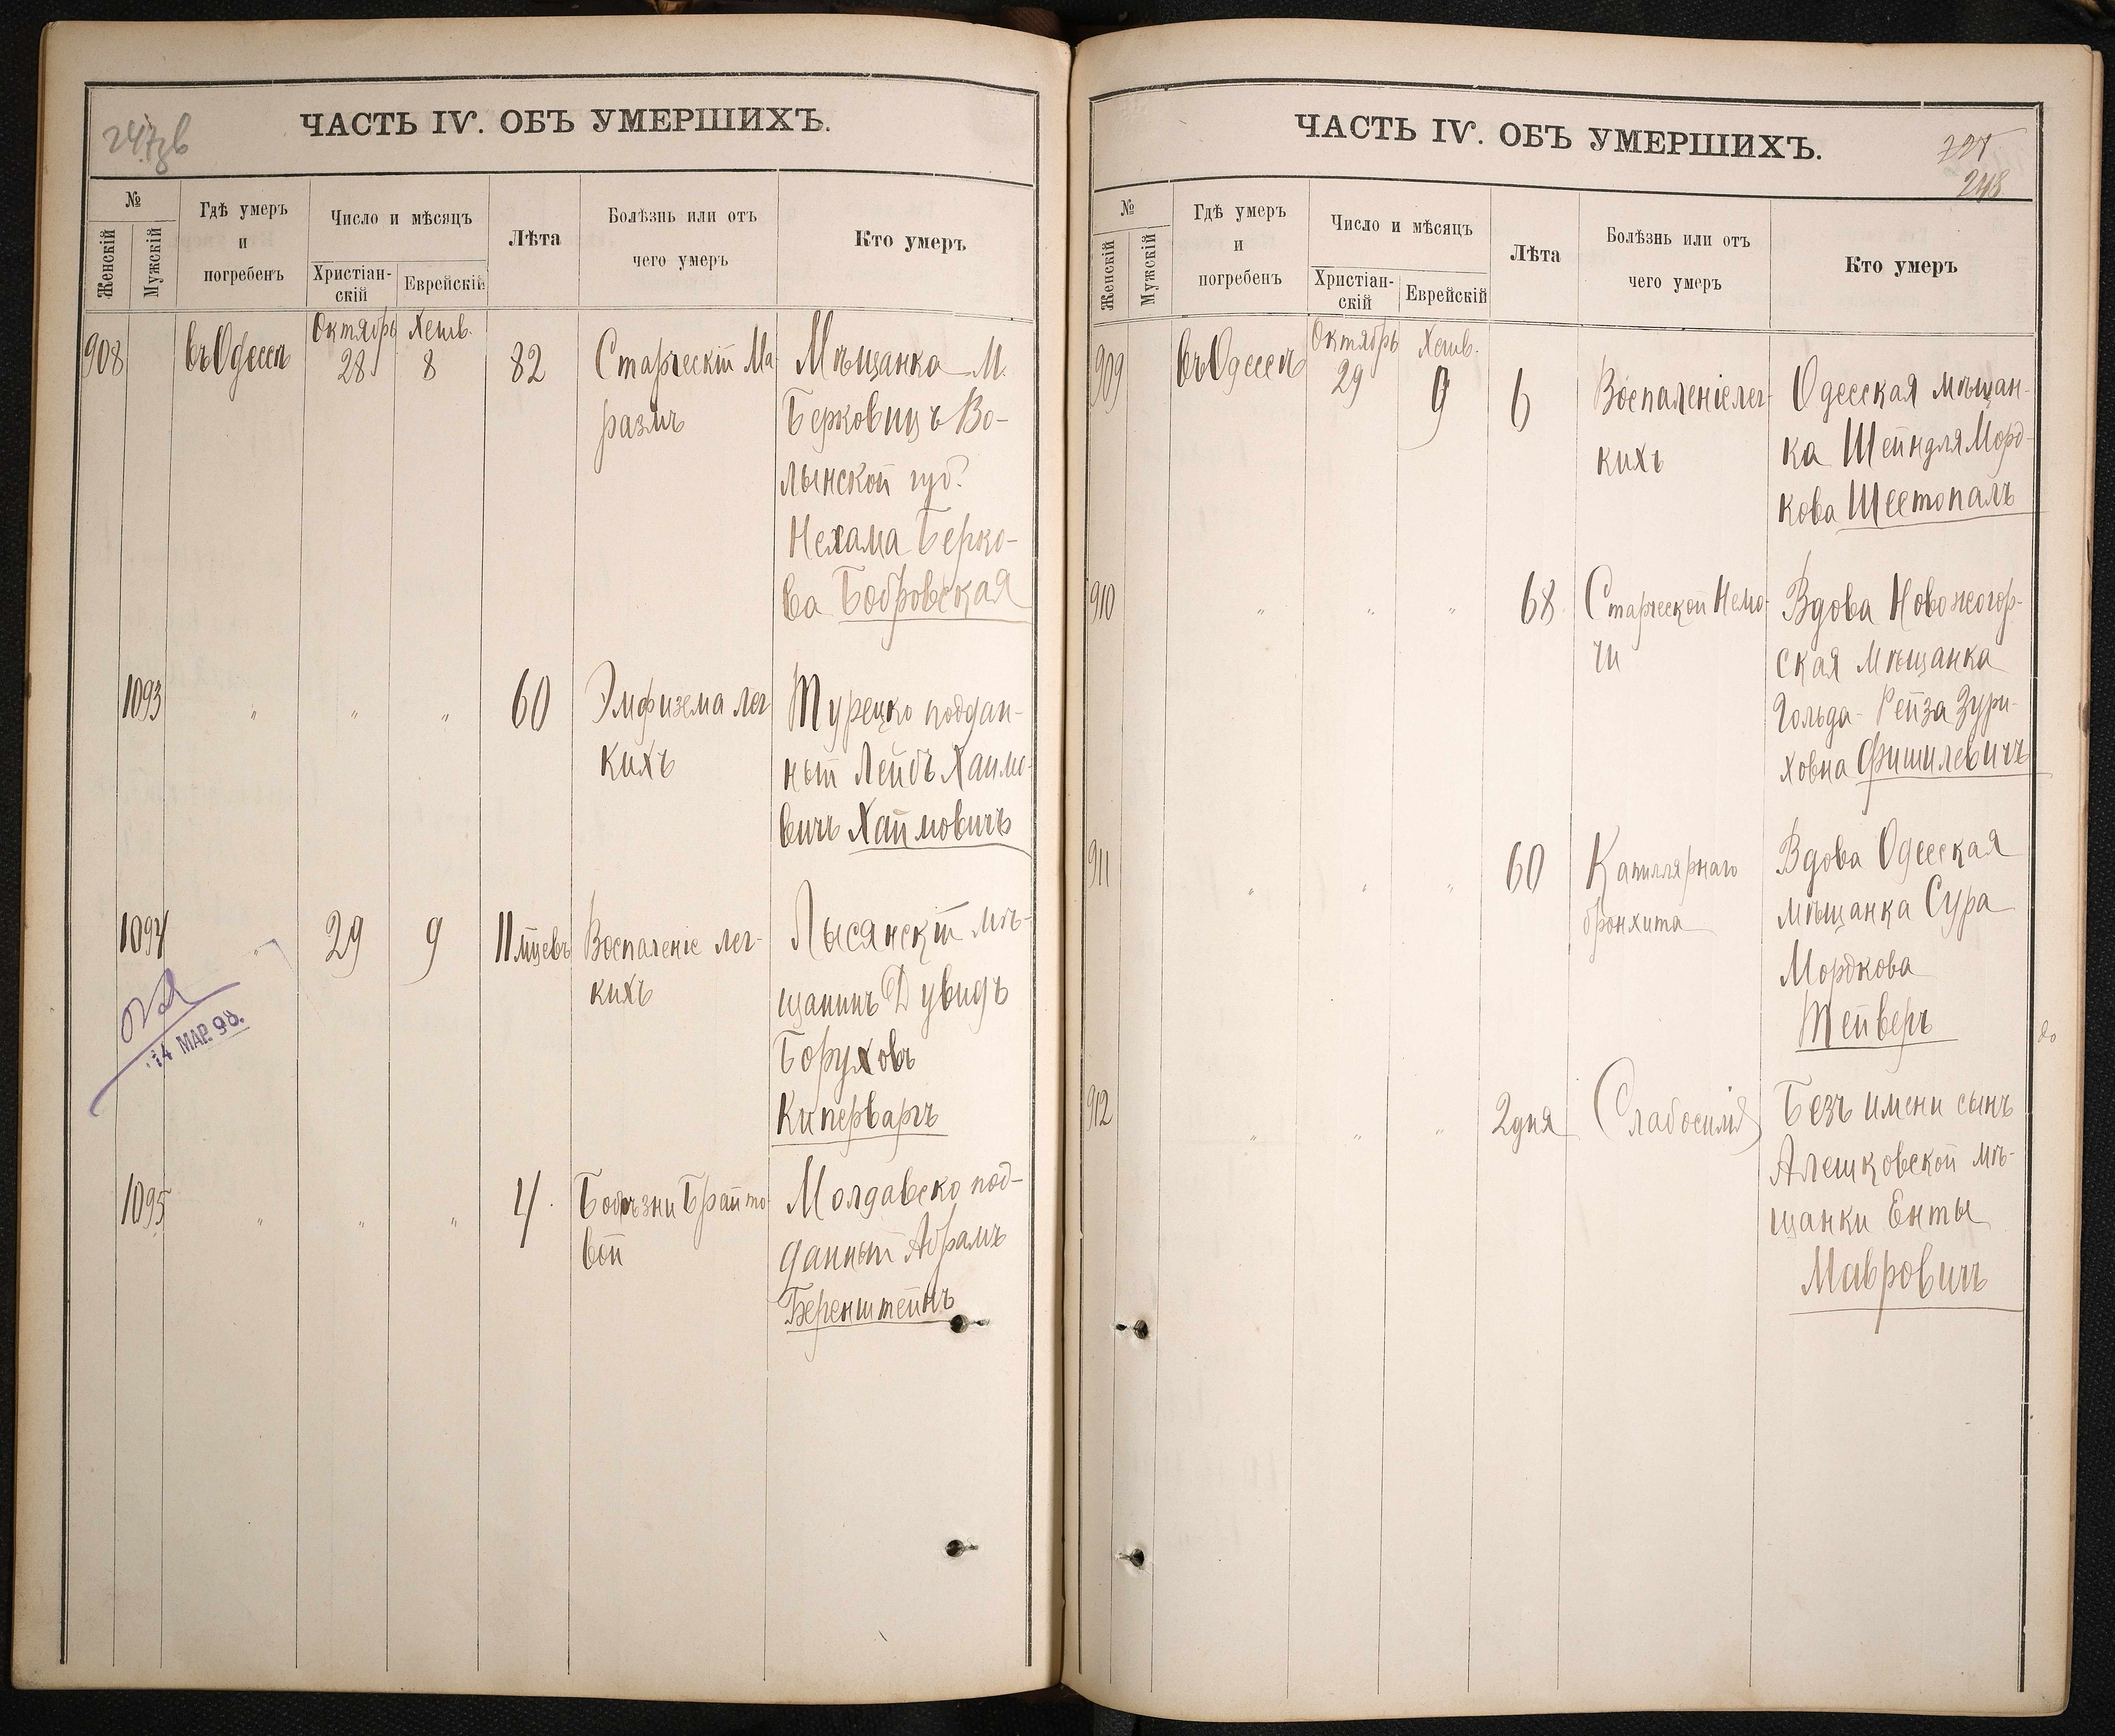 247зв
ЧАСТЬ IV. ОБЪ УМЕРШИХЪ.
№
Женскій
Мужскій
Гдѣ умеръ
и
погребенъ
Число и мѣсяцъ
Христіан-
скій
Еврейскій
Лѣта
Болѣзнь или отъ
чего умеръ
Кто умеръ
Октябрь Хешв.
908 въ Одессѣ 28 8 82 Старческій Ма-
размъ
Мѣщанка М.
Берковицъ Во-
лынской губ.
Нехама Берко-
ва Бобровская
1093 " " " 60 Эмфизема лег
кихъ
Турецко поддан-
ный Лейбъ Хаимо-
вичъ Хаймовичъ
1094 " 29 9 11 мѣцевъ Воспаленіе лег-
кихъ
Лысянскій мѣ-
щанинъ Дувидъ
Боруховъ
Киперваргъ
14 МАР. 98.
1095 " " " 4 Болѣзни Брайто-
вой
Молдавско под-
данный Абрамъ
Беренштейнъ
ЧАСТЬ IV. ОБЪ УМЕРШИХЪ.
248
№
Женскій
Мужскій
Гдѣ умеръ
и
погребенъ
Число и мѣсяцъ
Христіан-
скій
Еврейскій
Лѣта
Болѣзнь или отъ
чего умеръ
Кто умеръ
Октябрь Хешв.
909 въ Одессѣ 29 9 6 Воспаленіе лег-
кихъ
Одесская мѣщан-
ка Шейндля Морд-
кова Шестопалъ
910 " " " 68 Старческой Немо-
чи
Вдова Ново
ская мѣщанка
Гольда-Рейза Зури-
ховна Фишилевичъ
911 " " " 60 Капиллярнаго
бронхита
Вдова Одесская
мѣщанка Сура
Мордкова
Тейверъ
912 " " " 2 дня Слабосилія
Безъ имени сынъ
Алешковской мѣ-
щанки Енты
Мавровичъ